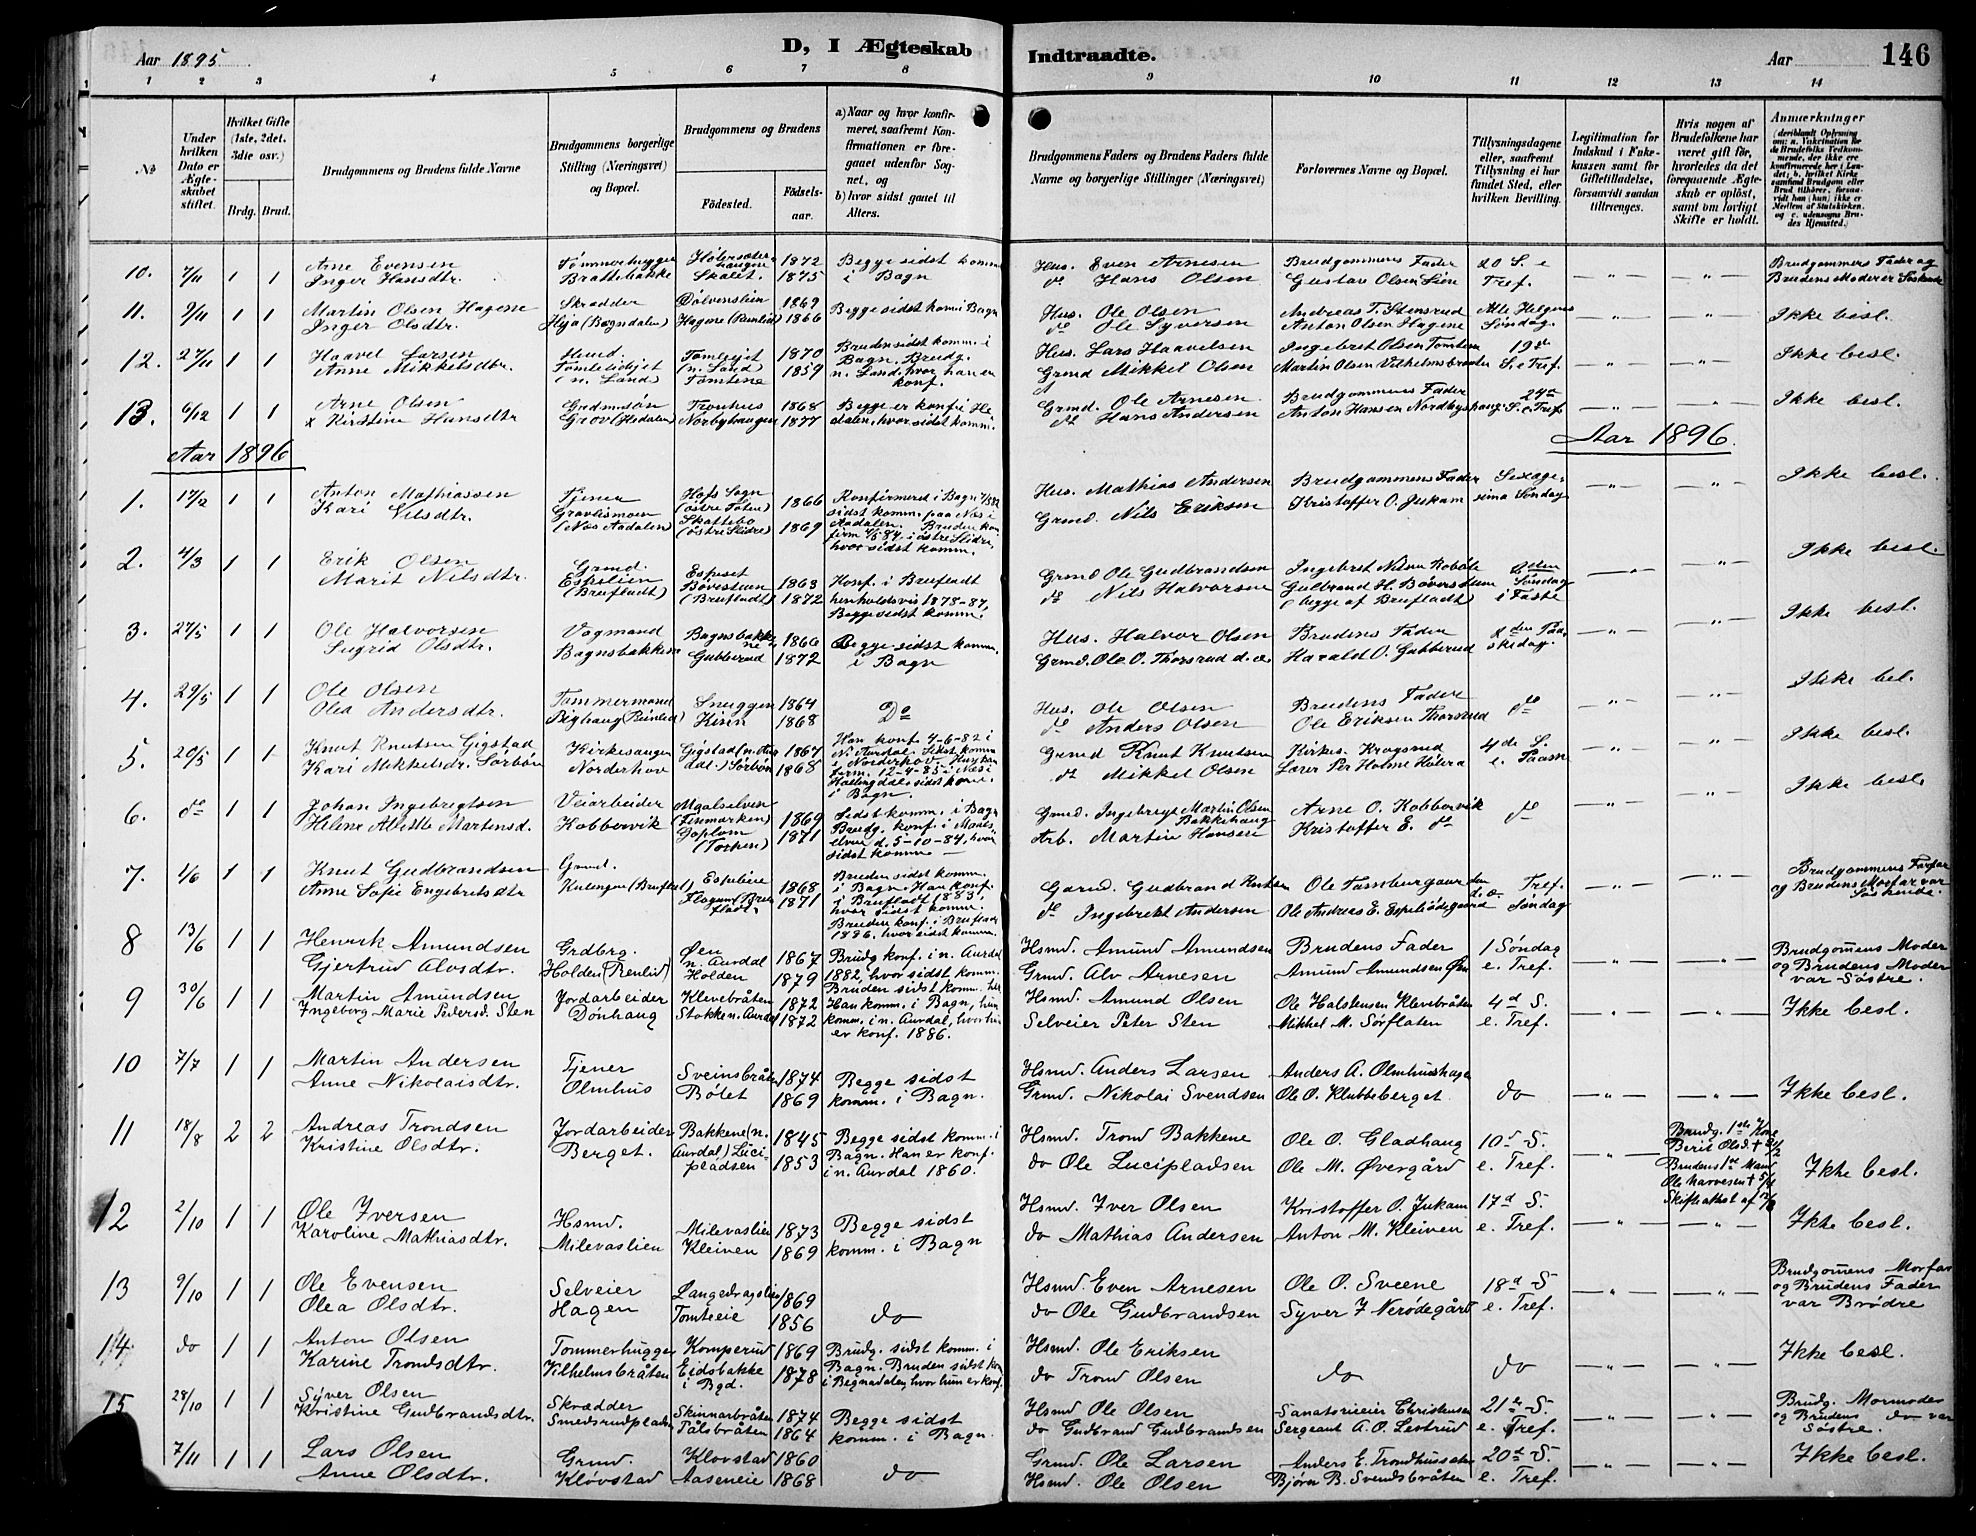 Aar 1895
D, I Ægteskab
Indtraadte.
Aar
146
1 2 3 4 5 6 7 8 9 10 11 12 13 14
No
Under hvilken Data er Ægteskabet stiftet.
Hvilket Gifte (1ste, 2det, 3die osv.)
Brdg. Brud.
Brudgommens og Brudens fulde Navne
Brudgommens borgerlige Stilling (Næringsvei) og Bopæl.
Brudgommens og Brudens
Fødested.
Fødselsaar.
a) Naar og hvor konfirmeret, saafremt Konfirmationen er foregaaet udenfor Sognet, og
b) hvor sidst gaaet til Alters.
Brudgommens Faders og Brudens Faders fulde Navne og borgerlige Stillinger (Næringsvei)
Forlovernes Navne og Bopæl.
Tillysningsdagene eller, saafremt Tillysning ei har fundet Sted, efter hvilken Bevilling.
Legitimation for Indskud i Enkekassen samt for Giftetilladelse, forsaavidt saadan tiltrænges.
Hvis nogen af Brudefolkene har været gift før, hvorledes da det foregaaende Ægteskab er opløst, samt om lovligt Skifte er holdt.
Anmærkninger
10. 7/11 1 1 Arne Evensen Tømmerhugger 1872 Begge sidst komm. Hus. Even Arnesen Brudgommens Fader 20 S. e Brudgommens Fader og
Inger Hansdtr. Brattebakke Skalet. 1875 i Bagn do Hans Olsen Gustav Olsen Tref. Brudens Moder er Søskende
11. 9/11 1 1 Martin Olsen Hagene Skrædder Dølvenslien 1869 Begge sidst kom i Bagn Hus. Ole Olsen Andreas T. Stensrud Alle Helgens Ikke besl.
Inger Olsdtr. (Bægndalen) Hagene (Reinlid) 1866 do Ole Syversen Anton Olsen Hagene Søndag.
12. 27/11 1 1 Haavel Larsen 1870 Bruden sidst komm. i Bagn. Brudg. Hus. Lars Haavelsen Ingebret Olsen 19de Ikke besl.
Anne Mikkelsdtr. (n. Land) (n. Land) Tomtene 1859 n. Land, hvor han er konf. Grmd Mikkel Olsen Martin Olsen Vilhelmsbraaten S. e Tref.
13. 6/12 1 1 Arne Olsen Gudmnsøn Tronhus 1868 Begge er konf i He Grmd. Ole Arnesen Brudgommens Fader 24de Ikke besl.
x Kirstine Hansdtr Grov (Hedalen) Norbyhaugen 1877 dalen, hvor sidst komm. do Hans Andersen Anton Hansen Nordbyhaug S. e Tref.
Aar 1896
Aar 1896.
1. 17/2 1 1 Anton Mathiassen Tjener Hofs Sogn (østre Toten) 1866 Konfirmered i Bagn sidst komm. paa Næs i Hus. Mathias Andersen Brudgommens Fader Sexage- Ikke besl.
Kari Nilsdtr. Gravlismoen (Næs Aadalen) Skattebo (østre Slidre) 1869 Aadalen. Bruden kon firm i østre Slidre, hvor sidst komm. Grmd. Nils Eriksen Kristoffer O. Jukam sima Søndag
2. 4/3 1 1 Erik Olsen Grmd. Espeset 1868 Konf. i Bruflat Grmd Ole Gudbrandsen Ingebret Nilsen Søndag Ikke besl.
Marit Nilsdtr. Espelien (Brufladt) (Brufladt) 1872 henholdsvis 1878-87, Begge sidst komm. do Nils Halvorsen Gulbrand H. (begge af Brufladt) i Faste
3. 27/5 1 1 Ole Halvorsen Vogmand Bagnsbakkene 1866 Begge sidst komm. Hus. Halvor Olsen Brudens Fader 2den Paa- Ikke besl.
Sigrid Olsdtr. Bagnsbakkene Gubberud 1872 i Bagn Grmd. Ole O. Thorsrud d. æ. Harald O. Gubberud skedag.
4. 29/5 1 1 Ole Olsen Tømmermand Snuggen 1864 Do Hus. Ole Olsen Brudens Fader do Ikke bel.
Olea Andersdtr. (Reinlid) 1868 do Anders Olsen Ole Eriksen Thorsrud
5. 20/5 1 1 Knut Knutsen Gigstad Kirkesanger Gigstad (n. Aur- 1867 Han konf. 4-6-82 i N. Aurdal. Sidst komm. i Norderhov. Hus kon Grmd Knut Knutsen Kirkes. Krogsrud 4de S. Ikke besl.
Kari Mikkelsdr. Sørbøn Norderhov dal.) Sørbøn 1868 firm. 12-4-85 i Næs i Hallingdal. sidst kom. i Bagn. do Mikkel Olsen Lærer Per Holme e. Paask
6. do 1 1 Johan Ingebregtsen Veiarbeider Maalselven (Finmarken) 1869 Sidst komm. i Bagn Grmd. Ingebregt Martin Olsen Bakkehaug Arne O. Kobbervik do Ikke besl.
Helene Martinsd. Kobbervik (Torpen) 1871 Brudg. konf. i Maalselven d. 5-10-84, hvor sidst komm. Arb. Martin Hansen Kristoffer E. do
7. 4/6 1 1 Knut Gudbrandsen Grmd. Espelien 1868 Bruden sidst komm. i Bagn. Han konf. i Brufladt 1883, Gaard. Gudbrand Ole Tamburgaarden d. æ. Tref. Brudgommens Farfar
Anne Sofie Engebretsdtr (Brufladt) 1871 hvor sidst komm. Bruden konf. i Bruflad 1886, hvor sidst komm. do Ingebrekt Andersen Ole Andreas E. Søndag og Brudens Morfar var Søskende.
8 13/6 1 1 Henrik Amundsen Grdbrg. Øen n. Aurdal 1867 Brudg konf. i n. Aurdal Hsmd. Amund Amundsen Brudens Fader 1 Søndag Brudgom̄ens Moder
Gjertrud Alvsdtr. Holden (Renlid) Holden 1879 1882, hvor sidst komm. Bruden sidst komm. Grmd. Alv Arnesen Amund Amundsen Øen e. Tref. og Brudens Moder var Søstre.
9 30/6 1 1 Martin Amundsen Jordarbeider Klevebråten 1872 Han komm. i Bagn, hun Hsmd. Amund Olsen Ole Halstensen Klevebråten 4d S. Ikke besl.
Ingeborg Marie Pedersd. Sten Dönhaug Stokke n. Aurdal 1872 komm. i n. Aurdal, hvor hun er konf. 1886. Selveier Peter Sten Mikkel M. Sørflaten e. Tref.
10 7/7 1 1 Martin Andersen Tjener Sveinsbråten 1874 Begge sidst Hsmd. Anders Larsen Anders A. Olmhushagen do
Anne Nikolaisdtr. Olmhus Bølet 1869 komm. i Bagn. Grmd. Nikolai Svendsen Ole O. Klubbeberget Ikke besl.
11 18/8 2 2 Andreas Trondsen Jordarbeider Bakkene (n. 1845 Begge sidst komm. i Hsmd. Trond Bakkene Ole O. Gladhaug 10d S. Brudg. 1ste Kone Berit Olsd. †
Kristine Olsdtr. Berget. Aurdal) Lucipladsen 1853 Bagn. Han er konf. i n. Aurdal 1860. do Ole Lucipladsen Ole M. Øvergård e. Tref. Brudens 1ste Mand Ole † Ikke besl.
12 2/10 1 1 Ole Iversen Hsmd. Milevaslien 1873 Begge sidst Hsmd. Iver Olsen Kristoffer O. Jukam 17d S. Ikke besl.
Karoline Mathiasdtr. Milevaslien Kleiven 1869 komm. i Bagn do Mathias Andersen Anton M. Kleiven e. Tref.
13 9/10 1 1 Ole Evensen Selveier Langedragslien 1869 do Hsmd. Even Arnesen Ole O. Sveene 18d S Brudgom̄ens Morfar
Olea Olsdtr. Hagen Tomteeie 1856 do Ole Gudbrandsen Syver I Nerødegård e. Tref. og Brudens Fader var Brødre
14 do 1 1 Anton Olsen Tømmerhugger Komperud 1869 Brudg. sidst komm. i Hsmd. Ole Eriksen do do Ikke besl.
Karine Trondsdtr. Vilhelmsbråten Eidsbakke i Bgd. 1878 Bagn. Bruden sidst kom i Begnadalen, hvor hun er konf. do Trond Olsen
15 28/10 1 1 Syver Olsen Skrædder Skinnarbråten 1874 Begge sidst Hsmd Ole Olsen Sanatorieeier Christensen 21de S. Brudg. Mormoder
Kristine Gudbrandsdtr. Smedsrudpladsen Pålsbråten 1864 komm. i Bagn. do Gudbrand Gudbrandsen Sergeant A. O. Lestrud e. Tref. og Brudens do var Søstre.
7/11 1 1 Lars Olsen Grmd. Klovstad 1860 do Grmd. Ole Larsen Anders E. 20d S. Ikke besl.
Anne Olsdtr. Kløvstad Aaseneie 1868 Hsmd. Ole Olsen Bjørn B. Svendsbråten e. Tref.